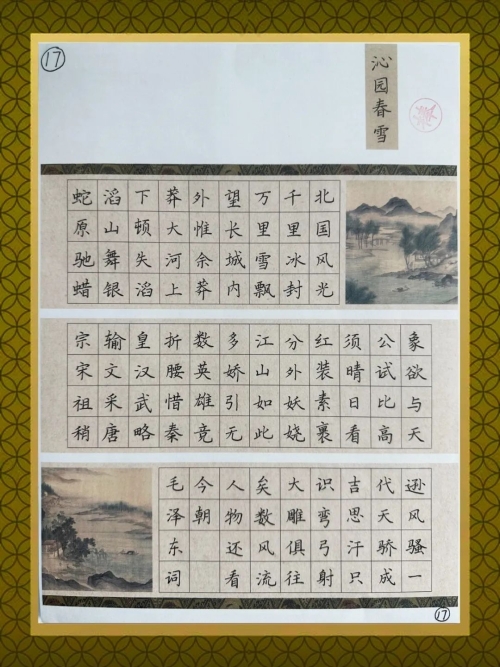 ⑰
沁园春雪
北国风光
千里冰封
万里雪飘
望长城内
外惟余莽
莽大河上
下顿失滔
滔山舞银
蛇原驰蜡
象欲与天
公试比高
须晴日看
红装素裹
分外妖娆
江山如此
多娇引无
数英雄竞
折腰惜秦
皇汉武略
输文采唐
宗宋祖稍
逊风骚一
代天骄成
吉思汗只
识弯弓射
大雕俱往
矣数风流
人物还看
今朝
毛泽东词
⑰